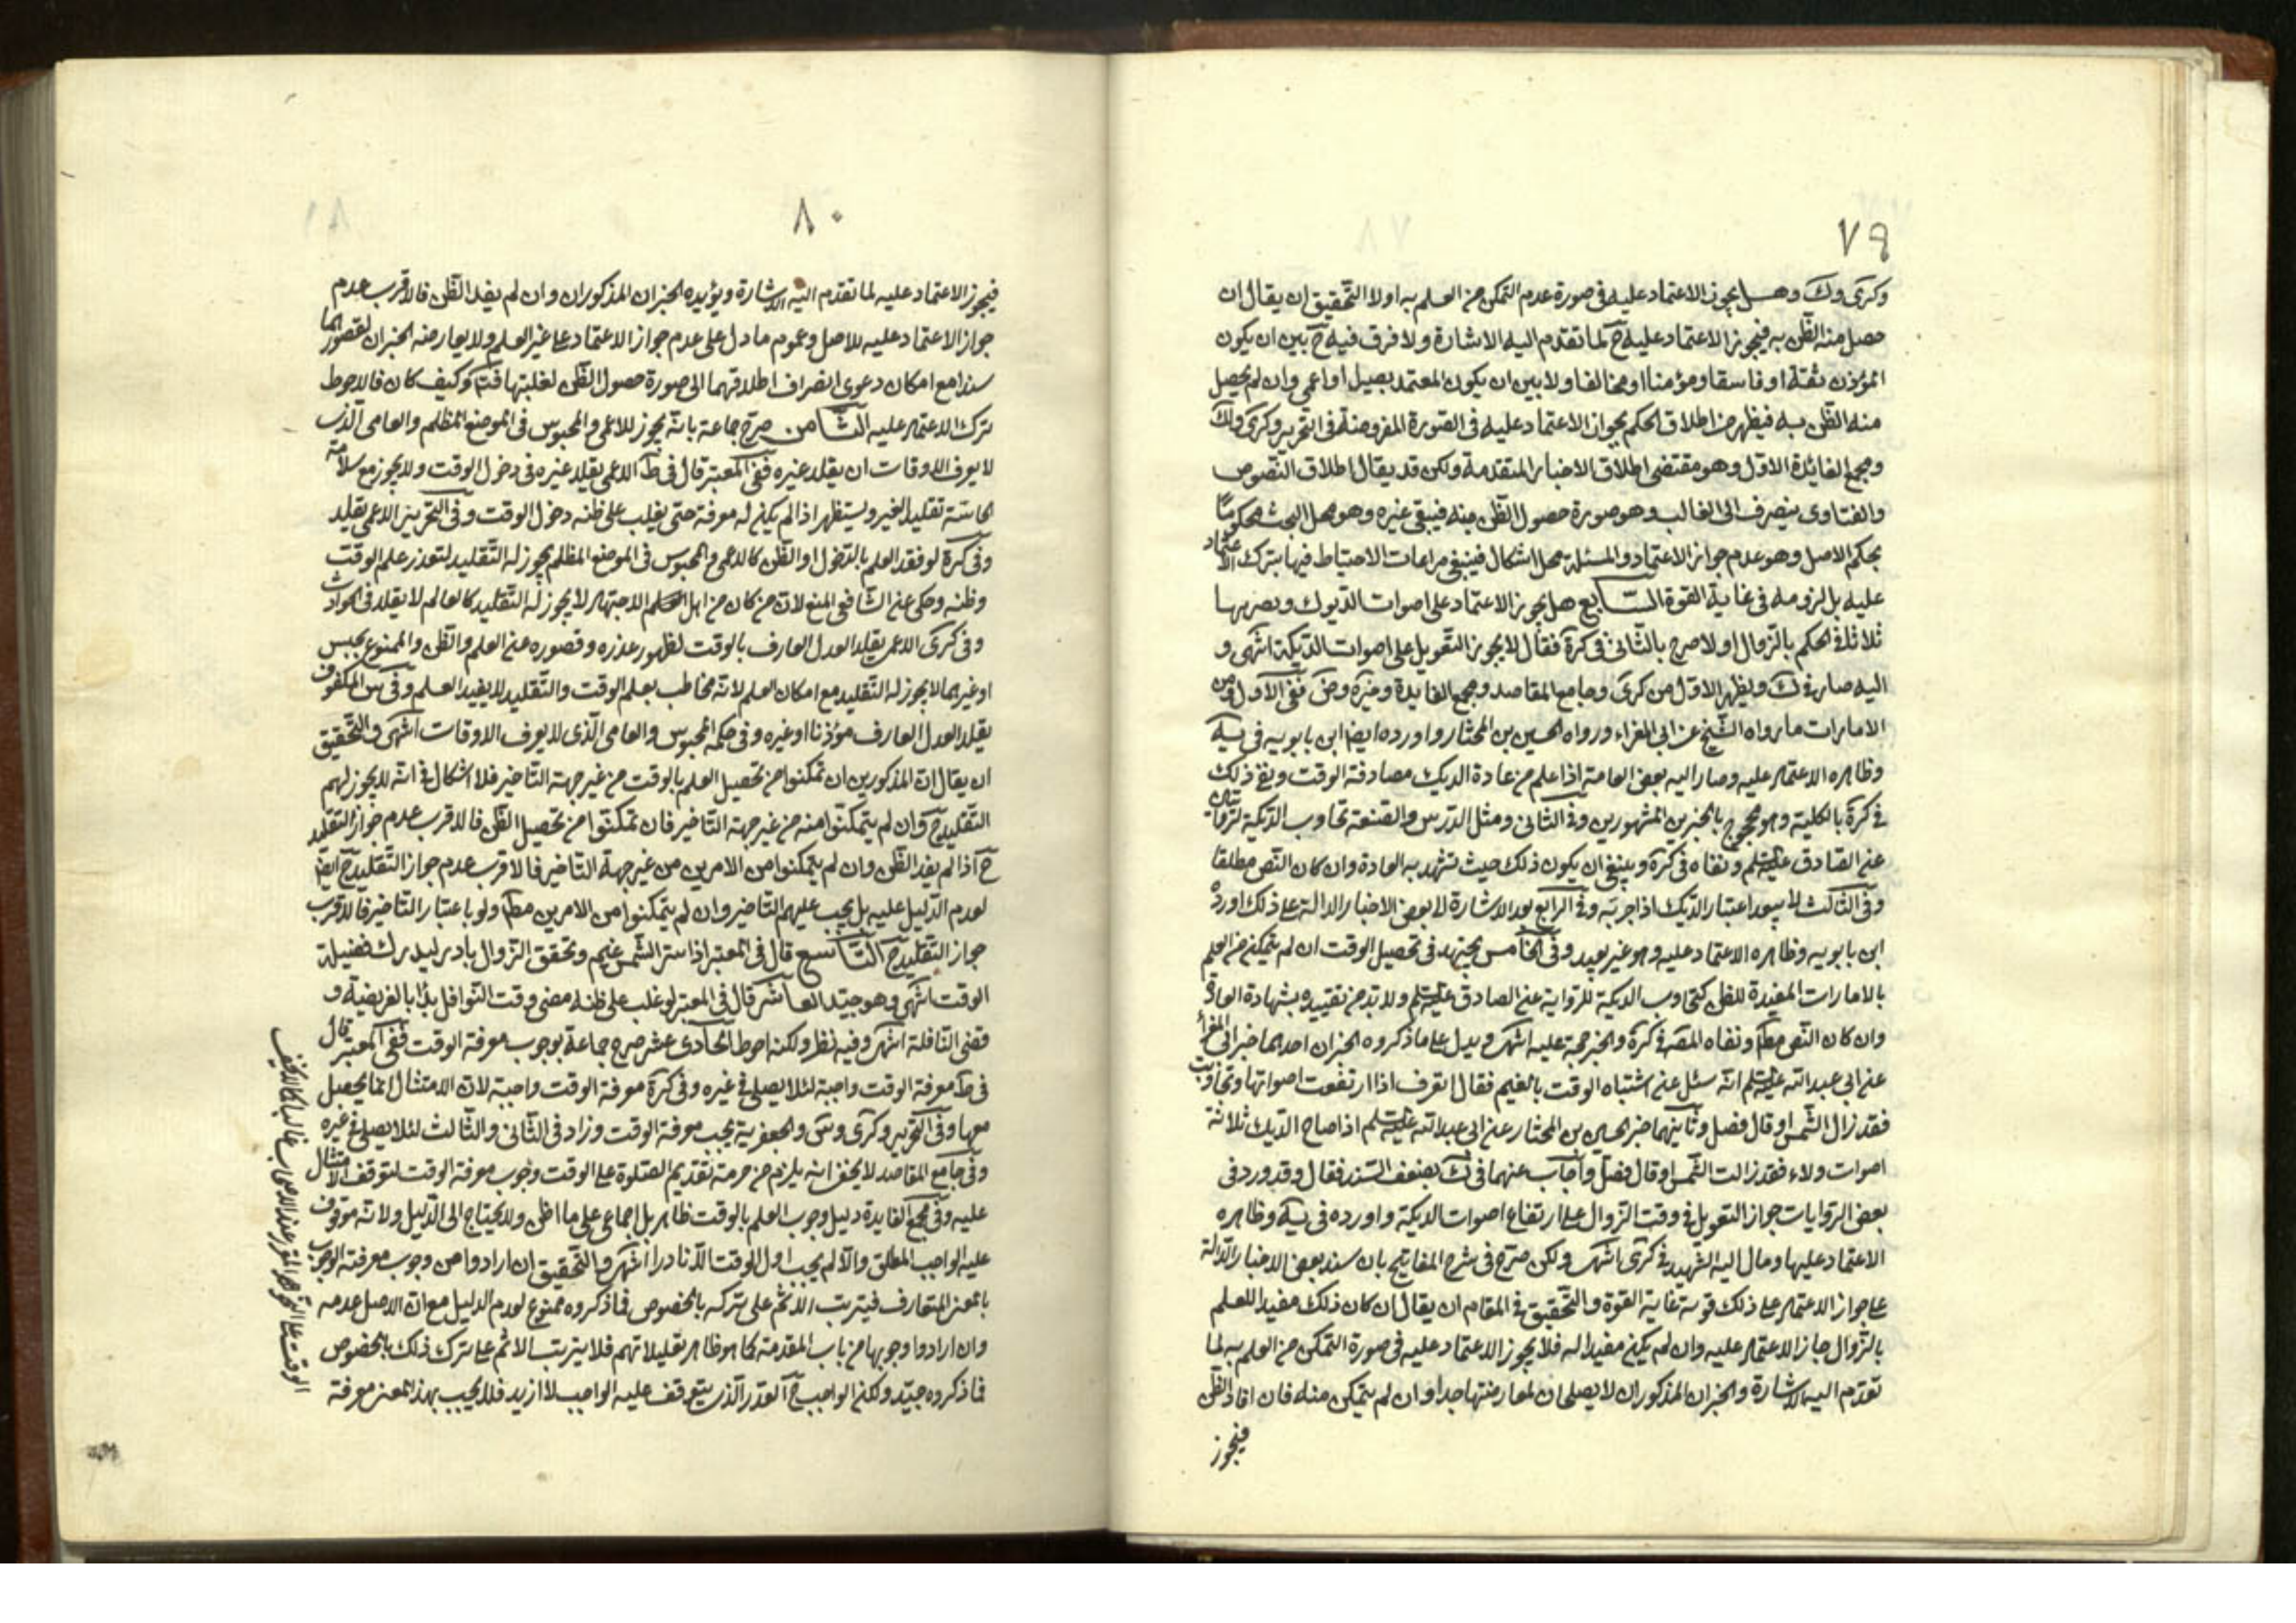 ٧٩
وكرى وك وهل يجوز الاعتماد عليه في صورة عدم التمكن من العلم به اولا التحقيق ان يقال ان
حصل منه الظن به فيجوز الاعتماد عليه ح لما تقدم اليه الاشارة ولا فرق فيه ح بين ان يكون
المؤذن ثقة او فاسقا ومؤمنا او مخالفا ولا بين ان يكون المعتمد بصيرا او اعمى وان لم يحصل
منه الظن به فيظهر من اطلاق الحكم بجواز الاعتماد عليه في الصورة المفروضة في التحرير وكرى وك
ومجمع الفائدة الاول وهو مقتضى اطلاق الاخبار المتقدمة ولكن قد يقال اطلاق النصوص
والفتاوى ينصرف الى الغالب وهو صورة حصول الظن منه فيبقى غيره وهو محل البحث محكوما
بحكم الاصل وهو عدم جواز الاعتماد والمسئلة محل اشكال فينبغي مراعات الاحتياط فيها بترك الاعتماد
عليه بل لزومه في غاية القوة السابع هل يجوز الاعتماد على اصوات الديوك وبصربها
ثلاثا في الحكم بالزوال اولا صرح بالثاني في كرة فقال لا يجوز التعويل على اصوات الديكة انتهى و
اليه صار في ك ويظهر الاول من كرى وجامع المقاصد ومجمع الفايدة وخيرة وض ففي الاول ومن
الامارات ما رواه الشيخ عن ابي المغراء ورواه الحسين بن المختار واورده ايضا ابن بابويه في يه
وظاهره الاعتماد عليه وصار اليه بعض العامة اذا علم من عادة الديك مصادفة الوقت ونفى ذلك
في كرة بالكلية وهو محجوج بالخبرين المشهورين وفي الثاني ومثل الدرس والصنعة تجاوب الديكة لروايتان
عن الصادق عليه السلم ونفاه في كرة وينبغي ان يكون ذلك حيث تشهد به العادة وان كان النص مطلقا
وفي الثالث لا يبعد اعتبار الديك اذا جربه وفي الرابع بعد الاشارة الى بعض الاخبار الدالة على ذلك اورده
ابن بابويه وظاهره الاعتماد عليه وهو غير بعيد وفي الخامس يجتهد في تحصيل الوقت ان لم يتمكن من العلم
بالامارات المفيدة للظن كتجاوب الديكة للرواية عن الصادق عليه السلم ولا بد من تقييده بشهادة العادة
وان كان النص مط ونفاه المصه في كرة والخبر حجة عليه انتهى ويدل على ما ذكروه الخبران احدهما خبر ابي المغراء
عن ابي عبد الله عليه السلم انه سئل عن اشتباه الوقت بالغيم فقال اتعرف اذا ارتفعت اصواتها وتجاوبت
فقد زال الشمس او قال فصل وثانيهما خبر الحسين بن المختار عن ابي عبد الله عليه السلم اذا صاح الديك ثلاثة
اصوات ولاء فقد زالت الشمس او قال فصل واجاب عنهما في ك بضعف السند فقال وقد ورد في
بعض الروايات جواز التعويل في وقت الزوال على ارتفاع اصوات الديكة واورده في يه وظاهره
الاعتماد عليها ومال اليه الشهيد في كرى انتهى ولكن صرح في شرح المفاتيح بان سند بعض الاخبار الدالة
على جواز الاعتماد على ذلك قوية غاية القوة والتحقيق في المقام ان يقال ان كان ذلك مفيدا للعلم
بالزوال جاز الاعتماد عليه وان لم يكن مفيدا له فلا يجوز الاعتماد عليه في صورة التمكن من العلم به لما
تقدم اليه الاشارة والخبران المذكوران لا يصلحان لمعارضتها جدا وان لم يتمكن منه فان افاد الظن
فيجوز
٨٠
فيجوز الاعتماد عليه لما تقدم اليه الاشارة ويؤيده الخبران المذكوران وان لم يفد الظن فالاقرب عدم
جواز الاعتماد عليه للاصل وعموم ما دل على عدم جواز الاعتماد على غير العلم ولا يعارضه الخبران لقصورهما
سندا مع امكان دعوى انصراف اطلاقهما الى صورة حصول الظن لغلبتها فت وكيف كان فالاحوط
ترك الاعتماد عليه الثامن صرح جماعة بانه يجوز للاعمى والمحبوس في الموضع المظلم والعامي الذي
لا يعرف الاوقات ان يقلد غيره ففي المعتبر قال في ط الاعمى يقلد غيره في دخول الوقت ولا يجوز مع سلامة
الحاسة تقليد الغير ويستظهر اذا لم يكن له معرفة حتى يغلب على ظنه دخول الوقت وفي التحرير الاعمى يقلد
وفي كرة لو فقد العلم بالدخول او الظن كالاعمى والمحبوس في الموضع المظلم يجوز له التقليد لتعذر علم الوقت
وظنه وحكى عن الشافعي المنع لان من كان من اهل الاجتهاد لا يجوز له التقليد كالعالم لا يقلد في الحوادث
وفي كرى الاعمى يقلد العدل العارف بالوقت لظهور عذره وقصوره عن العلم والظن والممنوع بحبس
او غيرهما لا يجوز له التقليد مع امكان العلم لانه مخاطب بعلم الوقت والتقليد لا يفيد العلم وفي س المكفوف
يقلد العدل العارف مؤذنا او غيره وفي حكمه المحبوس والعامي الذي لا يعرف الاوقات انتهى والتحقيق
ان يقال ان المذكورين ان تمكنوا من تحصيل العلم بالوقت من غير جهة التاخير فلا اشكال في انه لا يجوز لهم
التقليد ح وان لم يتمكنوا منه من غير جهة التاخير فان تمكنوا من تحصيل الظن فالاقرب عدم جواز التقليد
ح اذا لم يفد الظن وان لم يتمكنوا من الامرين من غير جهة التاخير فالاقرب عدم جواز التقليد ح ايضا
لعدم الدليل عليه بل يجب عليهم التاخير وان لم يتمكنوا من الامرين مط ولو باعتبار التاخير فالاقرب
جواز التقليد ح التاسع قال في المعتبر اذا ستر الشمس غيم وتحقق الزوال بادر ليدرك فضيلة
الوقت انتهى وهو جيد العاشر قال في المعتبر لو غلب على ظنه مضي وقت النوافل بدا بالفريضة و
قضى النافلة انتهى وفيه نظر ولكنه احوط الحادي عشر صرح جماعة بوجوب معرفة الوقت ففي المعتبر قال
في ط معرفة الوقت واجبة لئلا يصلي في غيره وفي كرة معرفة الوقت واجبة لان الامتثال انما يحصل
معها وفي التحرير وكرى وس والجعفرية يجب معرفة الوقت وزاد في الثاني والثالث لئلا يصلي في غيره
وفي جامع المقاصد لا يخفى انه يلزم من حرمة تقديم الصلوة على الوقت وجوب معرفة الوقت لتوقف الامتثال
عليه وفي مجمع الفايدة دليل وجوب العلم بالوقت ظاهر بل اجماعي على ما اظن ولا يحتاج الى الدليل ولانه موقوف
عليه الواجب المطلق والا لم يجب اول الوقت الا نادرا انتهى والتحقيق ان ارادوا من وجوب معرفته الوجوب
بالمعنى المتعارف فيترتب الاثم على تركه بالخصوص فما ذكروه ممنوع لعدم الدليل مع ان الاصل عدمه
وان ارادوا وجوبها من باب المقدمة كما هو ظاهر تعليلاتهم فلا يترتب الاثم على ترك ذلك بالخصوص
فما ذكروه جيد ولكن الواجب ح القدر الذي يتوقف عليه الواجب لا ازيد فلا يجب بهذا المعنى معرفة
الوقت على النحو المقرر عند